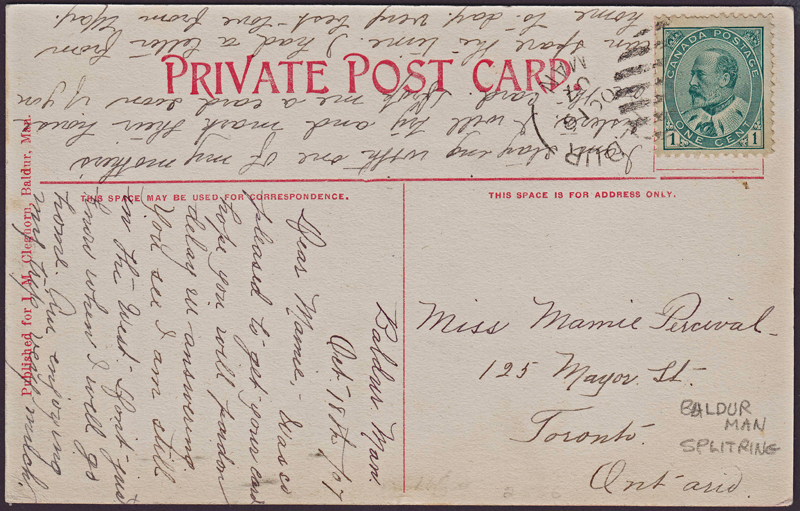 PRIVATE POST CARD.
CANADA POSTAGE
1 ONE CENT 1
DUR
OC
MAN
THIS SPACE MAY BE USED FOR CORRESPONDENCE.
THIS SPACE IS FOR ADDRESS ONLY.
Published for J. M. Cleghorn, Baldur, Man.
Miss Mamie Percival
125 Mayor St.
Toronto.
Ontario.
BALDUR
MAN
SPLITRING
Baldur. Man.
Oct. 18th /07
Dear Mamie, Was so
pleased to get your card
hope you will pardon
delay in answering.
You see I am still
in the West - Don't just
know when I will go
home. Am enjoying
my trip very much.
staying with one of my mother's
sisters. I will try and mark their house
card. Drop me a card soon if you
can spare the time. I had a letter from
home to-day. very best love from May.